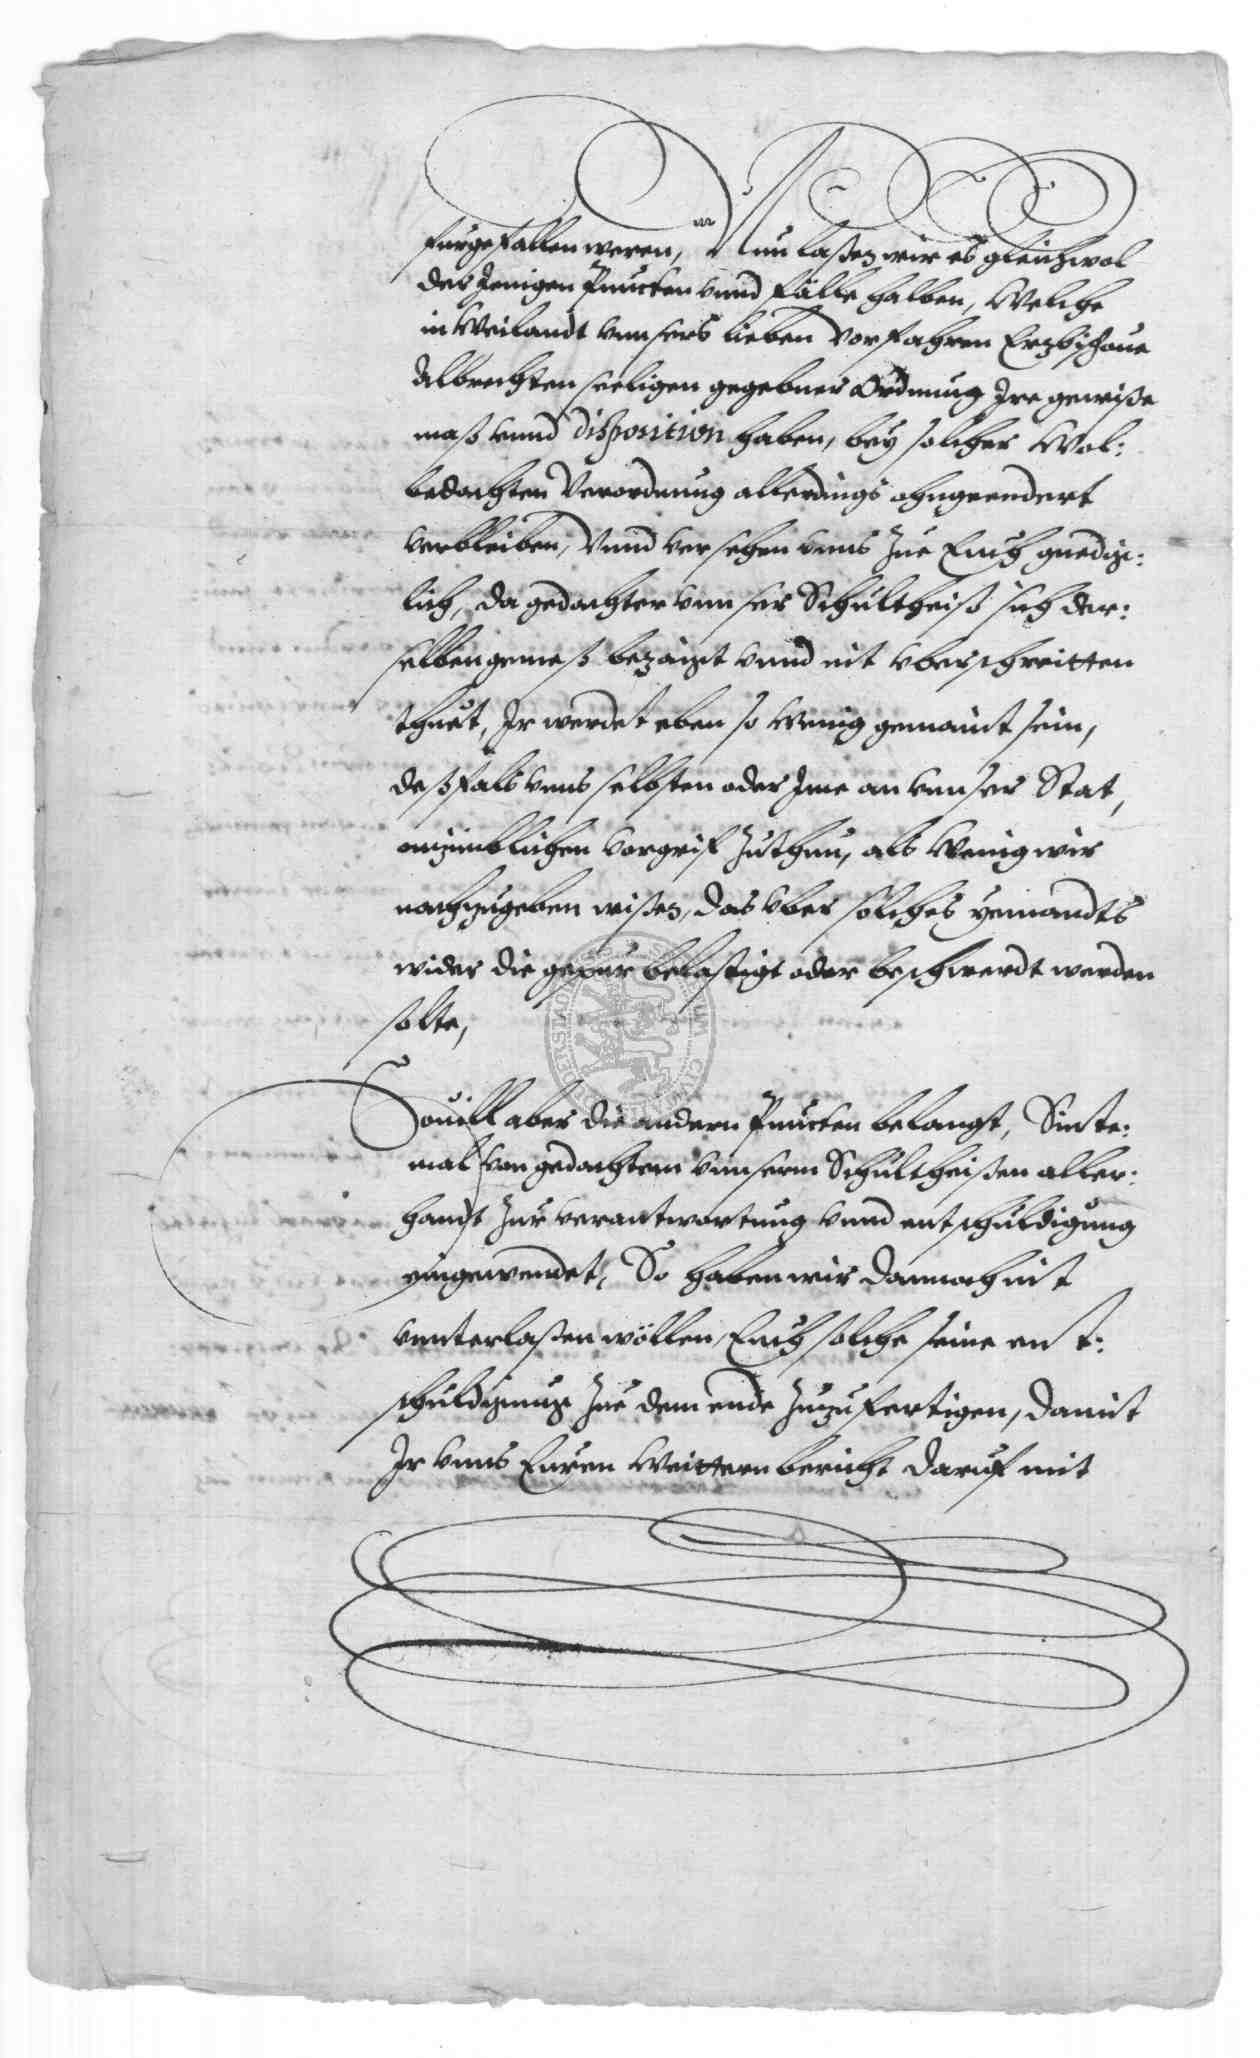 furgefallen weren, Nun laßen wir es gleichwol
der Jenigen Puncten vnnd Fälle halben, Welche
in Weilandt vnnsers lieben Vorfahren Erzbischoue
Albrechten seeligen gegebner Ordnung Ire gewiße
maß vnnd disposition haben, bey solcher Wol:
bedachten Verordnung allerdings ohngeendert
verbleiben, Vnnd versehen vnns zue Euch gnedig:
lich, da gedachter vnnser Schultheiß sich der:
selben gemeß bezaigt vnnd nit vberschreitten
thuet, Ir werdet eben so Wenig gemaint sein,
deßfals vnns selbsten oder Ime an vnnser Stat,
onziimblichen vorgrif zuthun, als Wenig wir
nachzugeben wißen, das vber solches yemandts
wider die gepur belastigt oder beschwerdt werden
solte,
Souill aber die andern Puncten belangt, Sinte:
mal von gedachtem vnnserm Schultheißen aller:
handt zur verantwortung vnnd entschuldigung
eingewendet, So haben wir dannoch nit
vnnterlaßen wöllen, Euch solche seine ent:
schuldigung zue dem ende zuzufertigen, damit
Ir vnns Euren Weittern bericht daruf mit